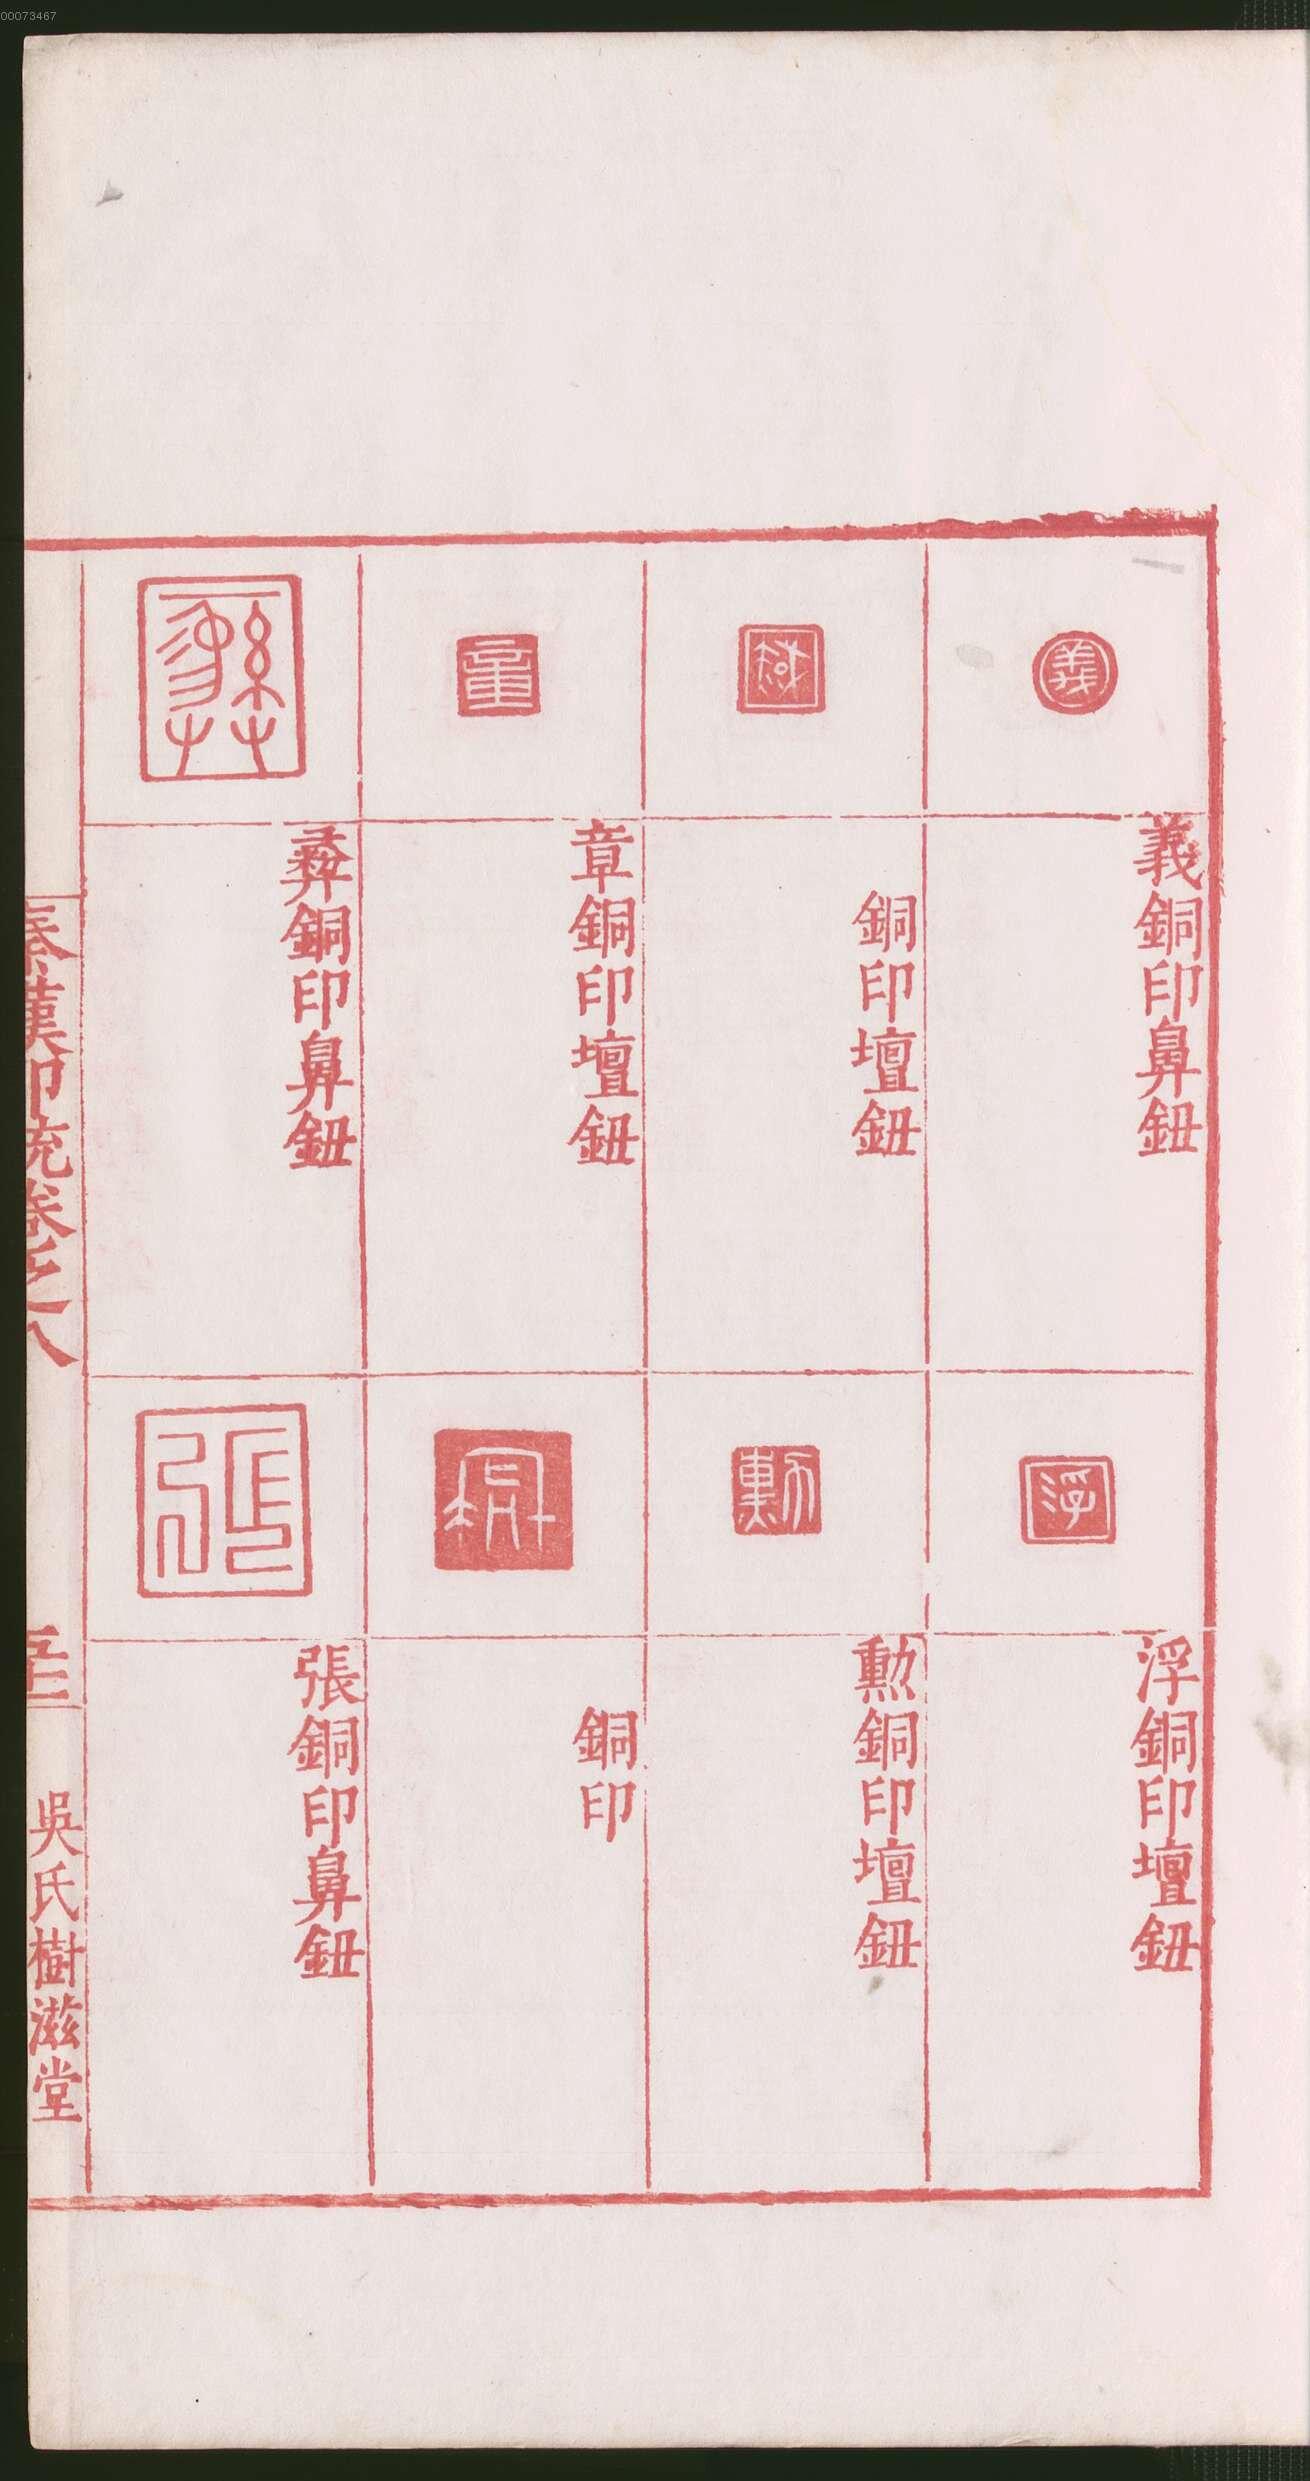 00073467
義銅印鼻鈕
銅印壇鈕
章銅印壇鈕
彝銅印鼻鈕
浮銅印壇鈕
勲銅印壇鈕
銅印
張銅印鼻鈕
秦漢印統卷之八
吳氏樹滋堂
義
章
浮
勲
張